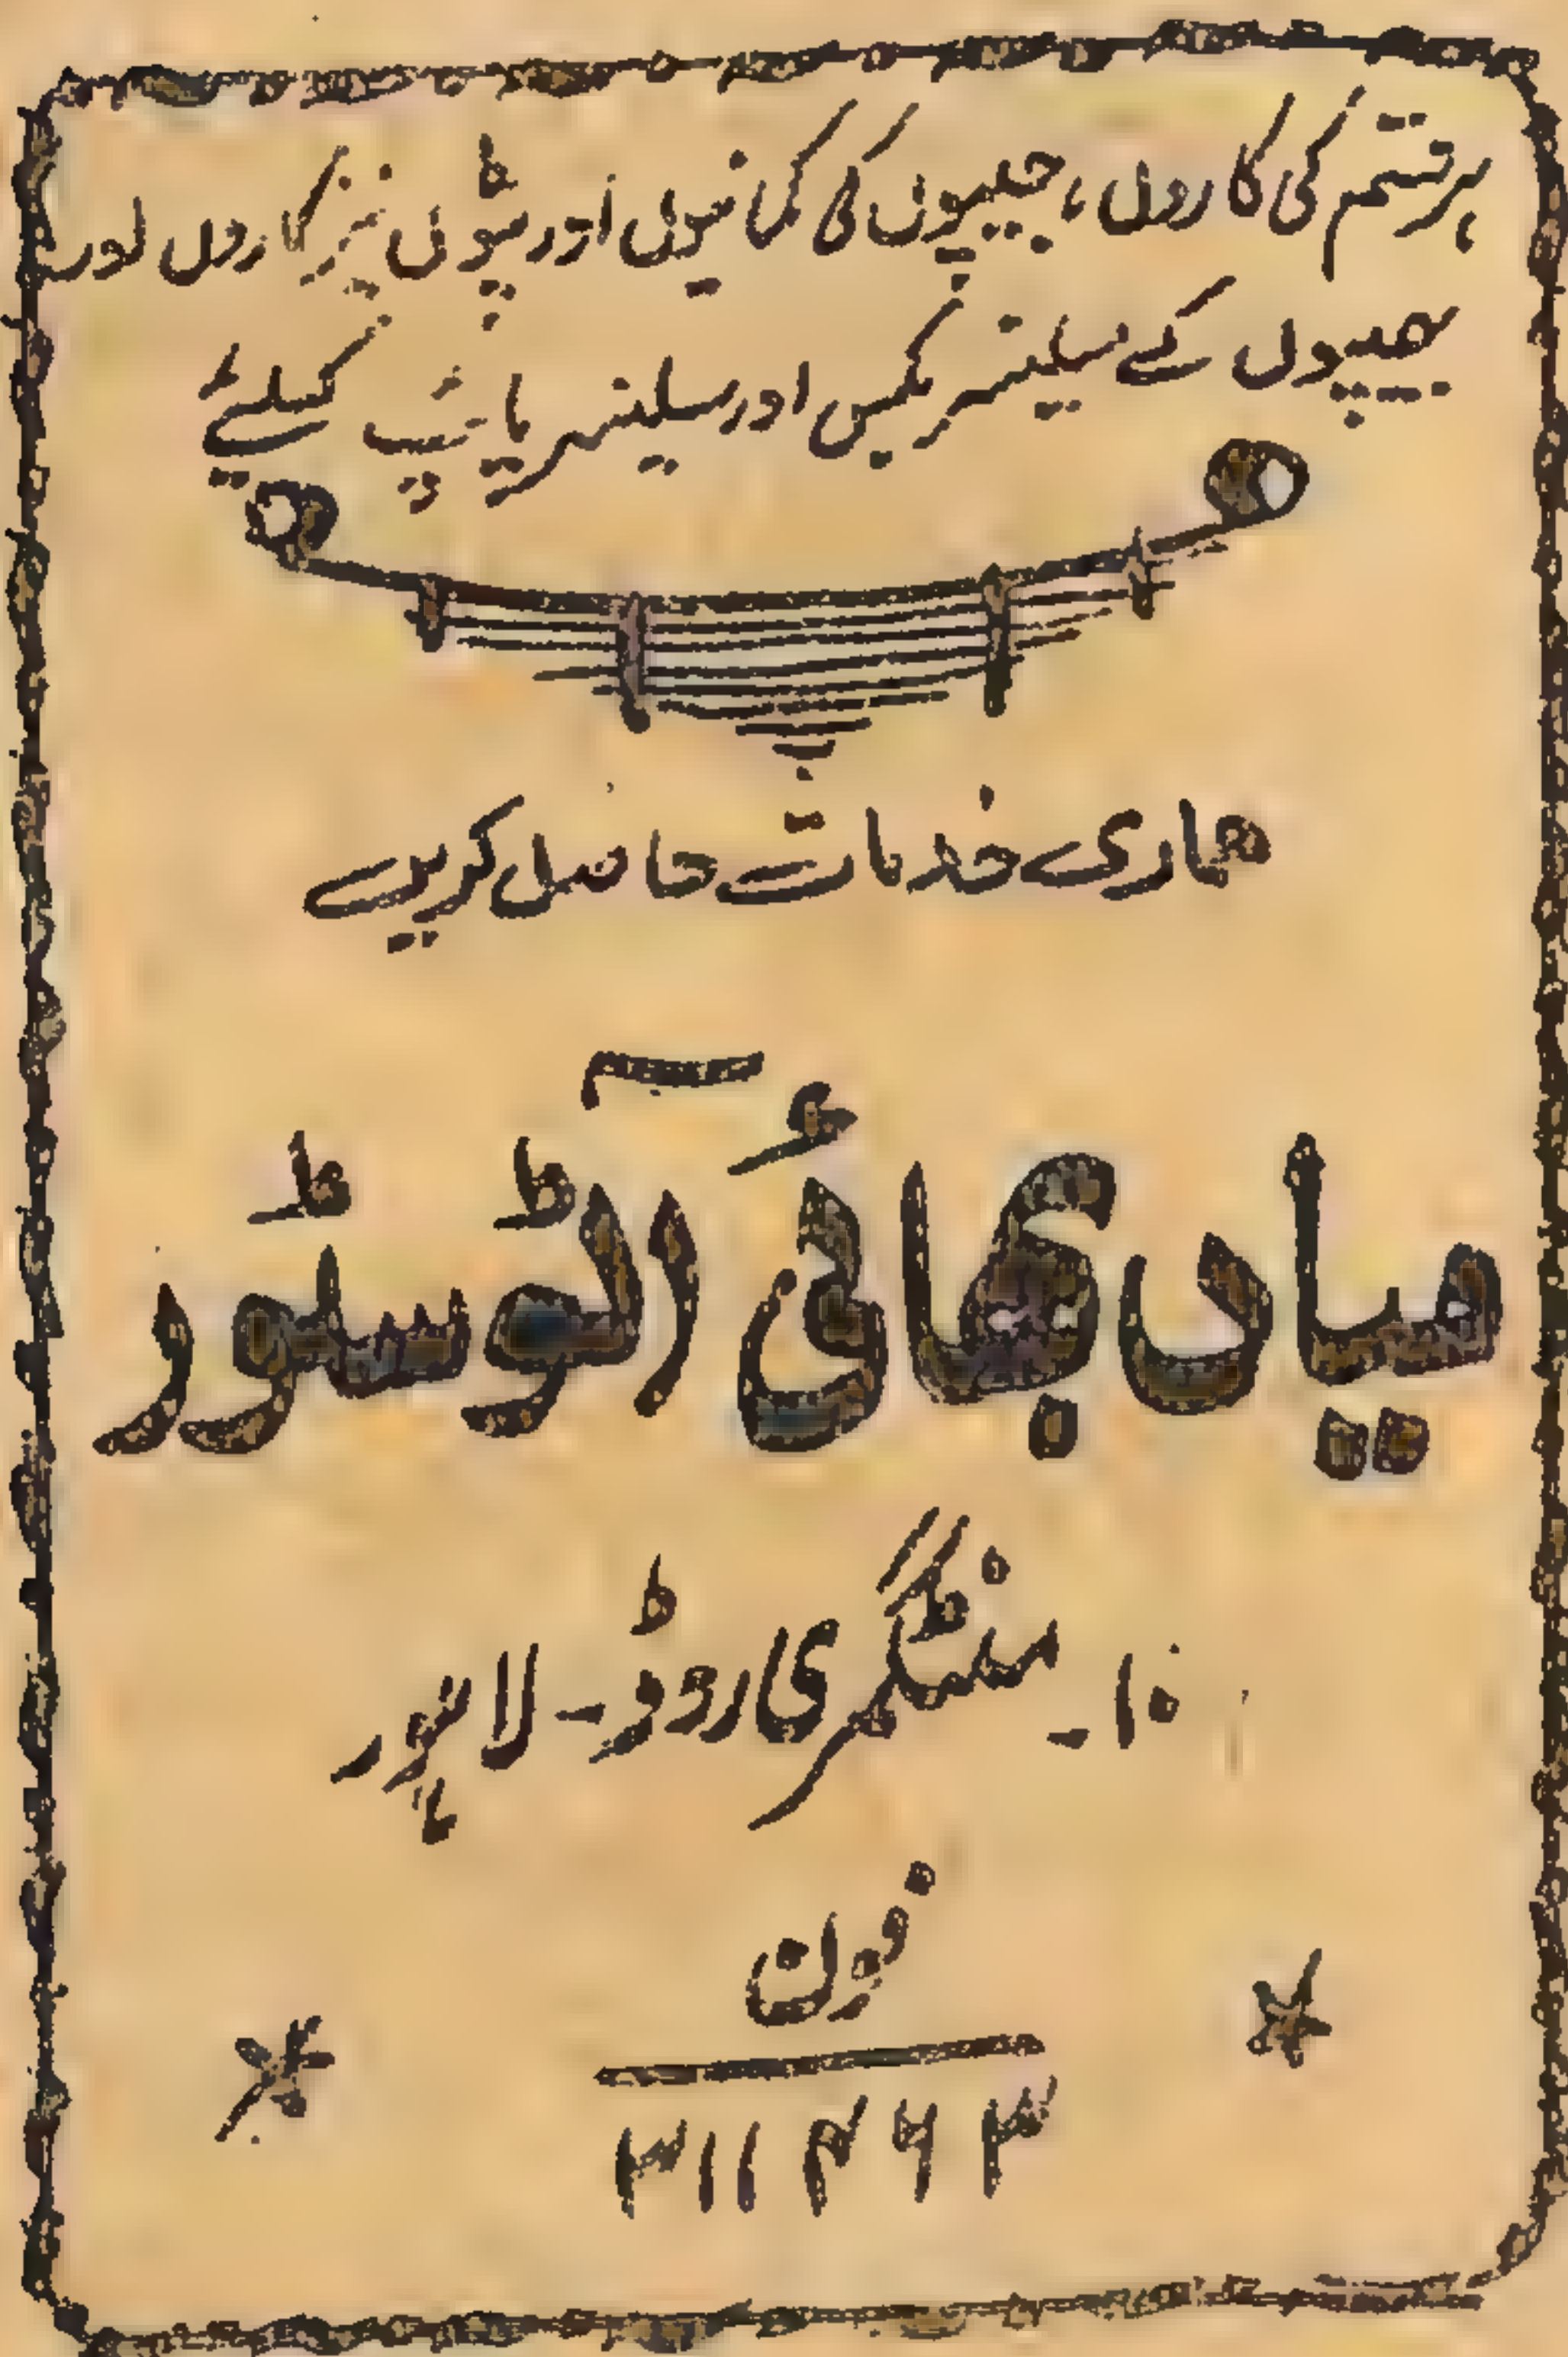 ہر قسم کی کاروں، جیپوں کی کمانیوں اور پٹوں نیز کاروں اور
جیپوں کے سیلنسر بکس اور سیلنسر پائپ کیلئے
ہماری خدمات حاصل کریں
میاں بھائی آٹو سٹور
۱۰۔ منٹگمری روڈ۔ لاہور
فون
۳۱۱۴۶۳